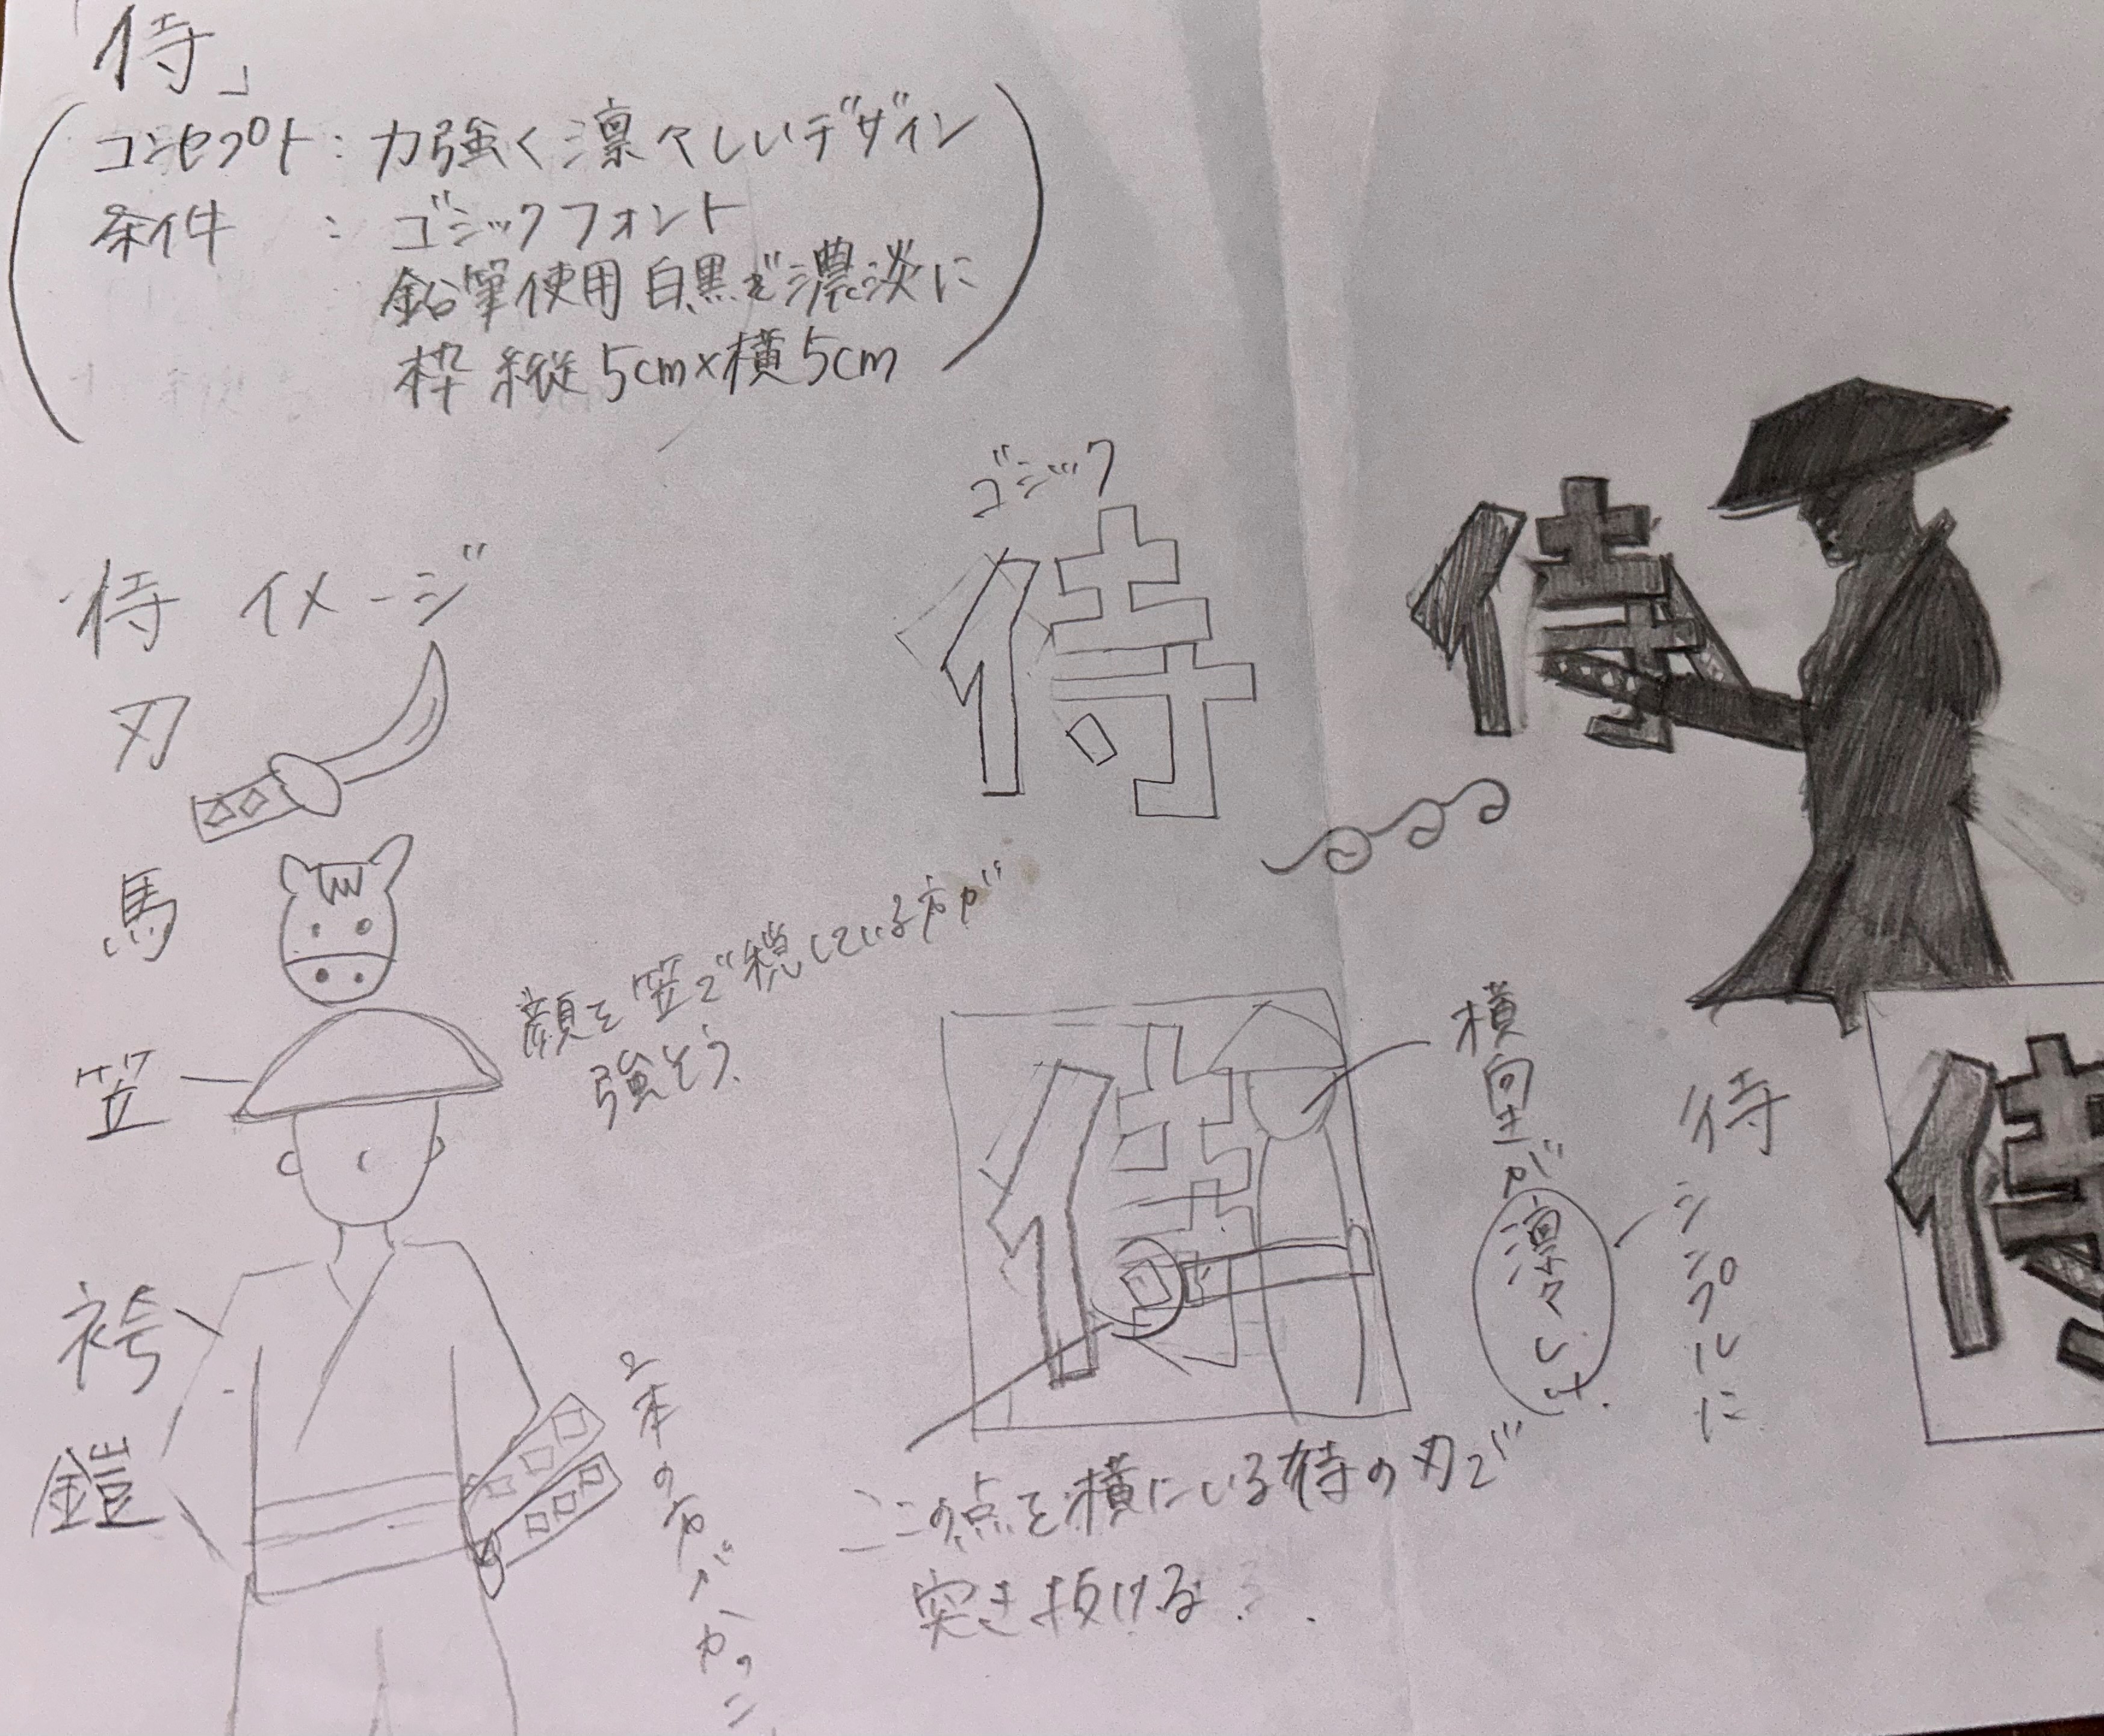 「侍」
コンセプト：力強く凛々しいデザイン
条件：ゴシックフォント
鉛筆使用 白黒で濃淡に
枠 縦5cm×横5cm
侍 イメージ
刃
馬
笠
袴
鎧
顔を笠で隠している方が
強そう、
2本の方が
ゴシック
侍
侍
侍
横向きが凛々しい、
ここの点を横にいる侍の刃で
突き抜ける、
侍
シンプルに
侍